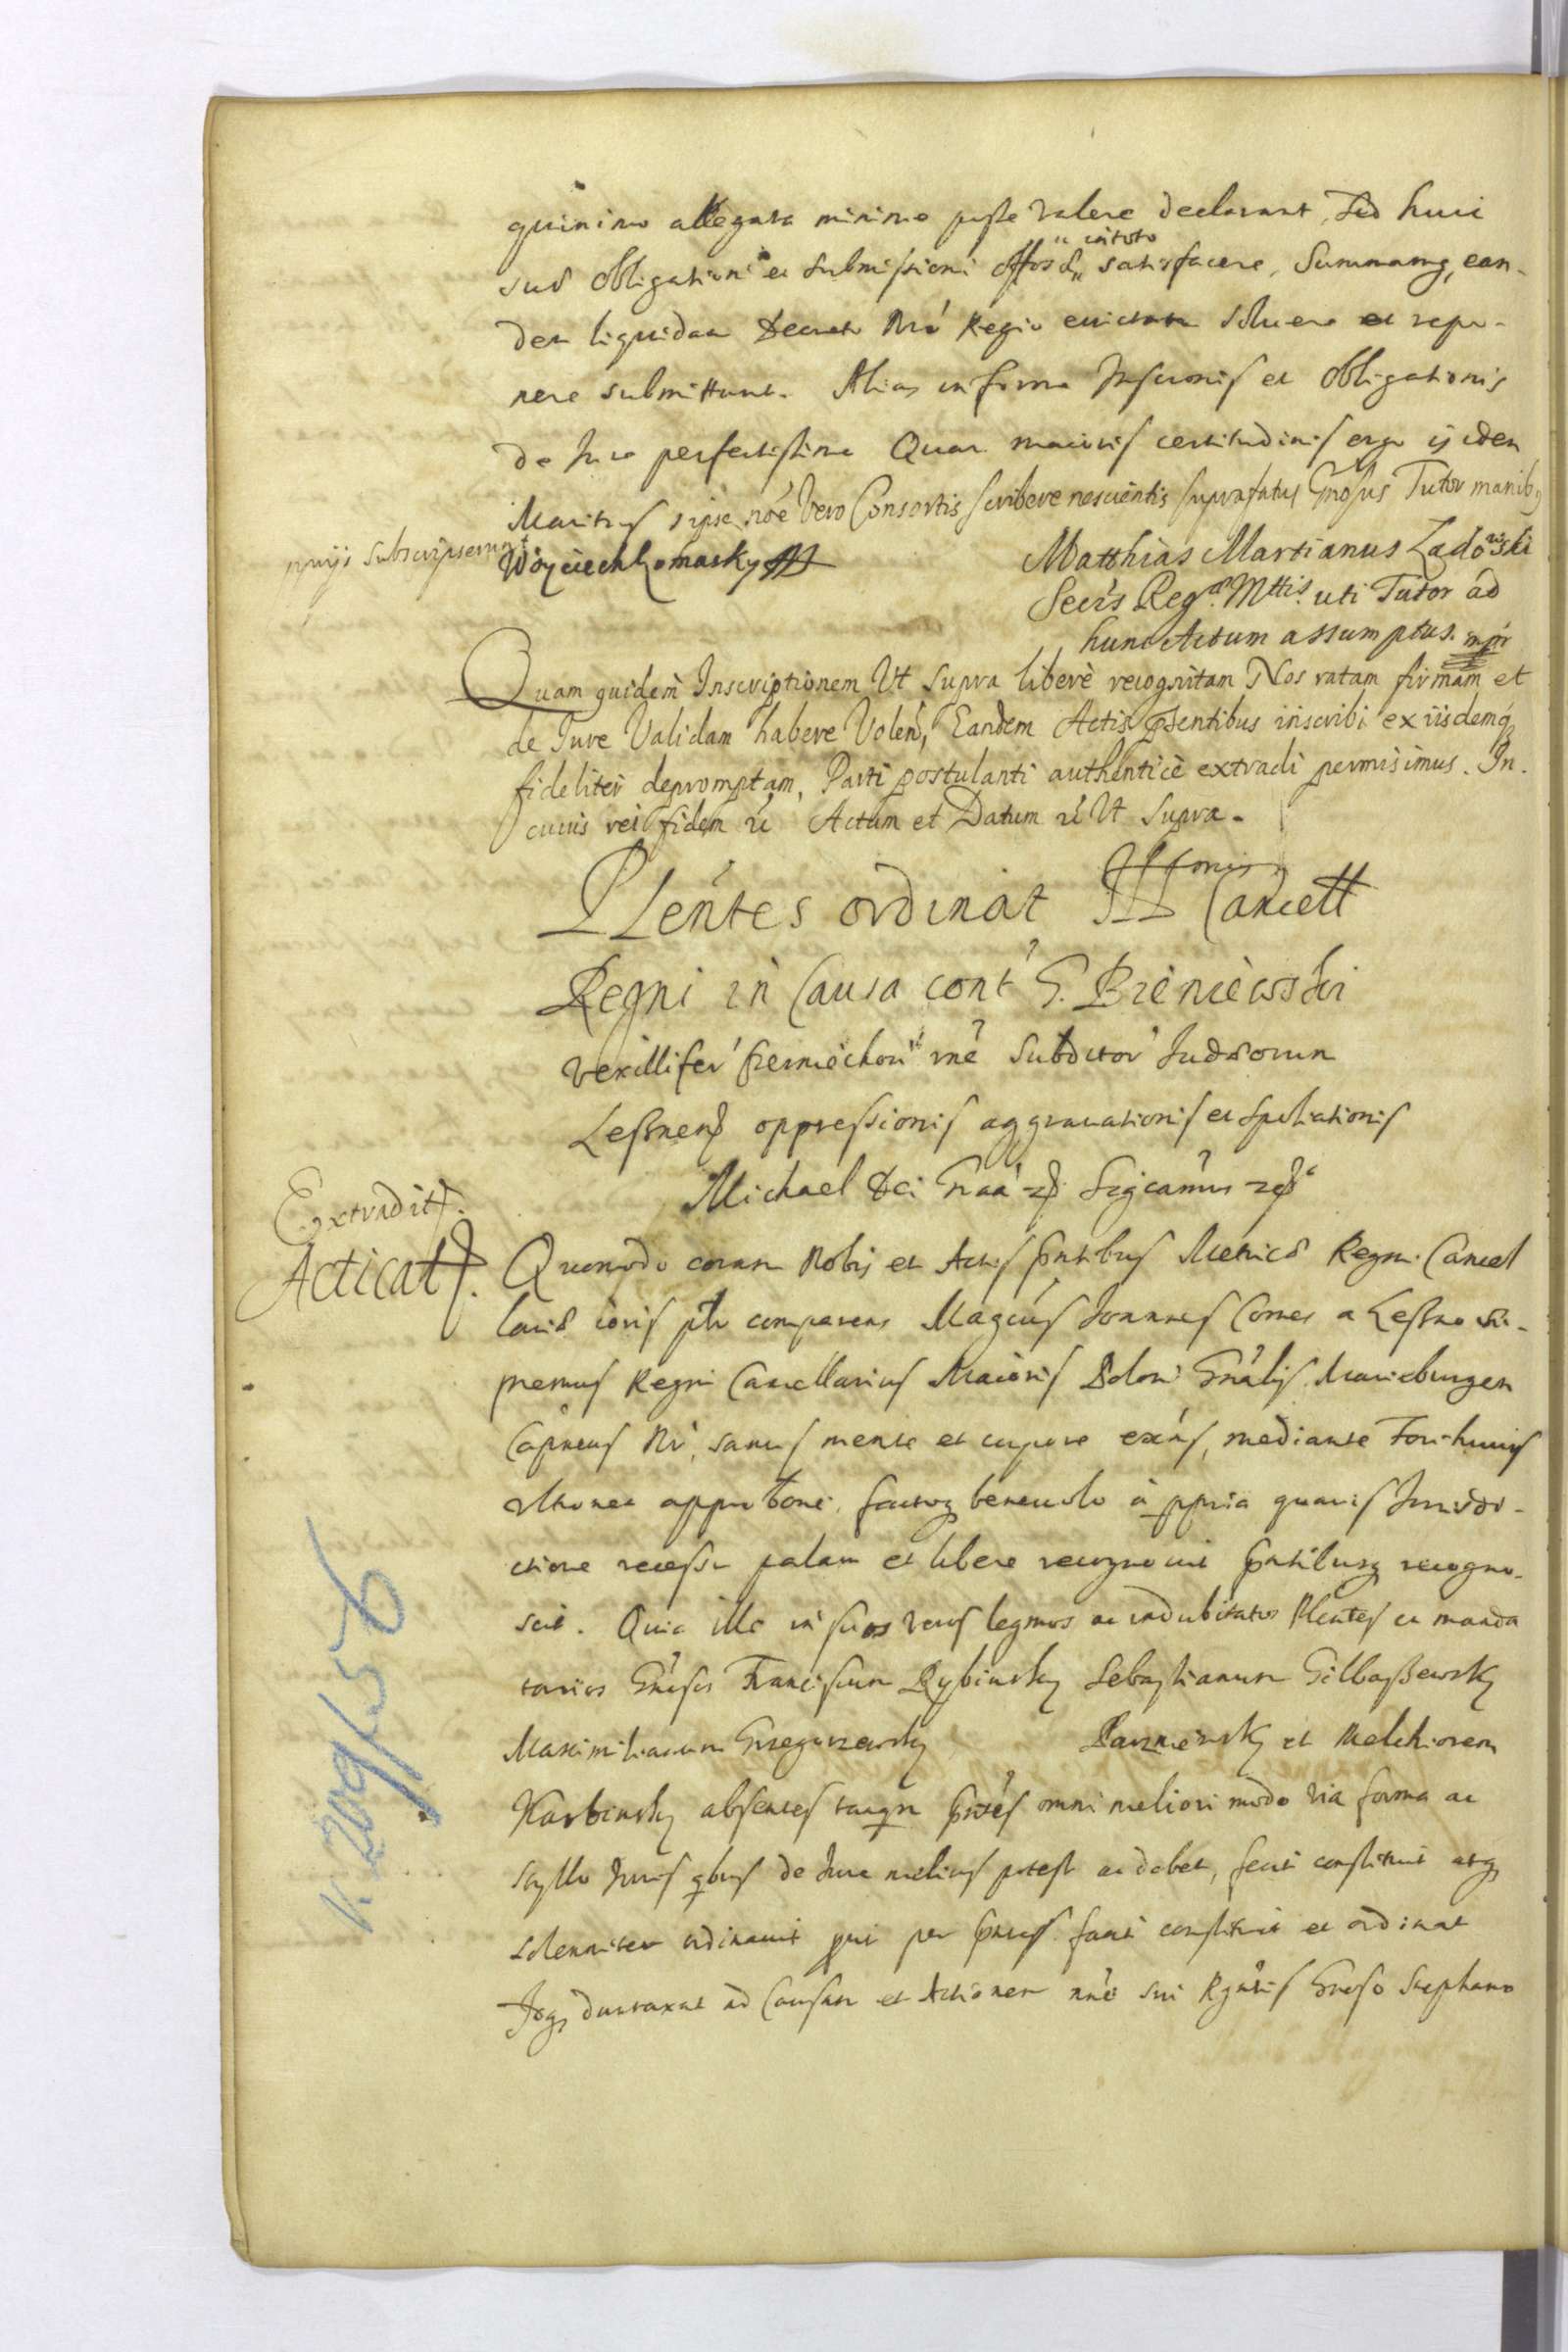 quinimo allegata minime juste valere declarant, sed huic
suæ obligationi et submissioni intoto satisfacere, Summamq, ean-
dem liquidam Decreto Nro Regio evictam soluere et repo-
nere submittunt. Alias in forma Inscronis et Obligationis
de Jure perfectissima Quam maioris certitudinis ergo ijdem
Maritus ipse, noe Vero Consortis scribere nescientis suprafatus Gnosus Tutor manibq
pprijs subscripserunt
Woyciech Lomasky
Matthias Martianus Ladowski
Secrs Regæ Mttis uti Tutor ad
hunc Actum assumptus. mpr
Quam quidem Inscriptionem Vt supra liberè recognitam Nos ratam firmam et
de Jure Validam habere Volen, Eandem Actis psentibus inscribi ex iisdemq
fideliter depromptam, Parti postulanti authenticè extradi permisimus. In
cuius rei fidem Actum et Datum Vt Supra.
Plentes ordinat Ill Cancell
Regni in Causa cont G. Bieniewski
vexillifer Czerniechou rne Subditor Judæorum
Lesznens oppressionis aggrauationis et spoliationis
Michael Dei Graa Sigcamus
Extradit.
Acticat.
Quomodo coram Nobis et Actis pntibus Metricæ Regni Cancel
lariæ ioris plr comparens Magcus Joannes Comes a Leszno su-
premus Regni Cancellarius Maioris Polon Gnalis Marieburgen
Capneus Nr, sanus mente et corpore exns, mediante Fori huius
approbone, benevolo à ppria quavis Jurisdi-
ctione recessu palam et libere recognovit pntibusq recogno-
scit. Quia ille in suos veros legmos ac indubitatos Plentes et manda
tarios Gnosos Franciscum Rybinsky Sebastianum Gilbaszewsky
Maximilianum Grzegorzewsky et Melchiorem
Karbinsky absentes tanqm pntes omni meliori modo via forma ac
stylo Juris qbus de Jure melius potest ac debet, fecit constituit atq
solenniter ordinavit pout per pntes facit constituit et ordinat
Idq duntaxat ad Causam et Actionem nne sui Gnoso Stephano
N. 209/156